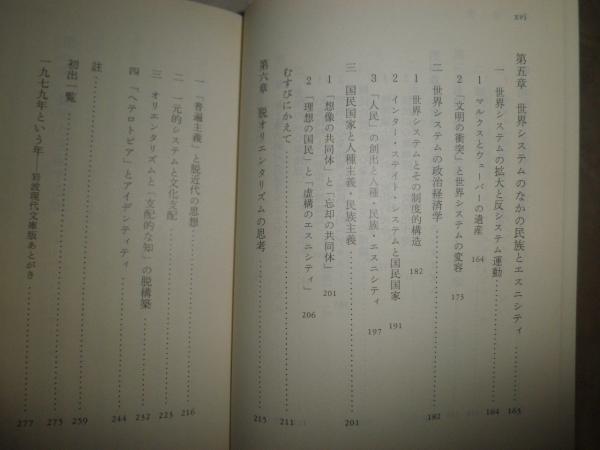 xvj
第五章 世界システムのなかの民族とエスニシティ……163
一 世界システムの拡大と反システム運動……164
1 マルクスとウェーバーの遺産……164
2 「文明の衝突」と世界システムの変容……173
二 世界システムの政治経済学……182
1 世界システムとその制度的構造……182
2 インター・ステイト・システムと国民国家……191
3 「人民」の創出と人種・民族・エスニシティ……197
三 国民国家と人種主義・民族主義……201
1 「想像の共同体」と「忘却の共同体」……201
2 「理想の国民」と「虚構のエスニシティ」……206
むすびにかえて……211
第六章 脱オリエンタリズムの思考……215
一 「普遍主義」と脱近代の思想……216
二 一元的システムと文化支配……223
三 オリエンタリズムと「支配的な知」の脱構築……232
四 「ヘテロトピア」とアイデンティティ……244
註……259
初出一覧……275
一九七九年という年――岩波現代文庫版あとがき……277